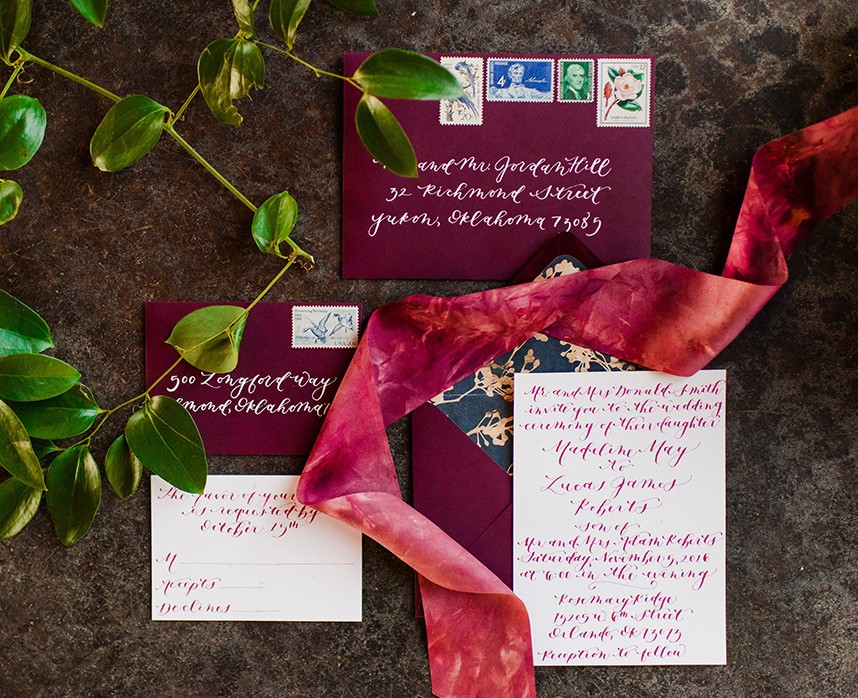 and Mr. Jordan Hill
32 Richmond Street
Yukon, Oklahoma 73085
4
20
12
500 Longford Way
mond, Oklahoma
The favor of your
is requested by
October 15th
M
Accepts
Declines
Mr and Mrs Donald Smith
invite you to the wedding
ceremony of their daughter
Madeline May
to
Lucas James
Roberts
son of
Mr and Mrs. Adam Roberts
Saturday November 5, 2016
at 6:00 in the evening
Rosemary Ridge
15205 W 6th Street
Orlando, OK 73073
Reception to follow